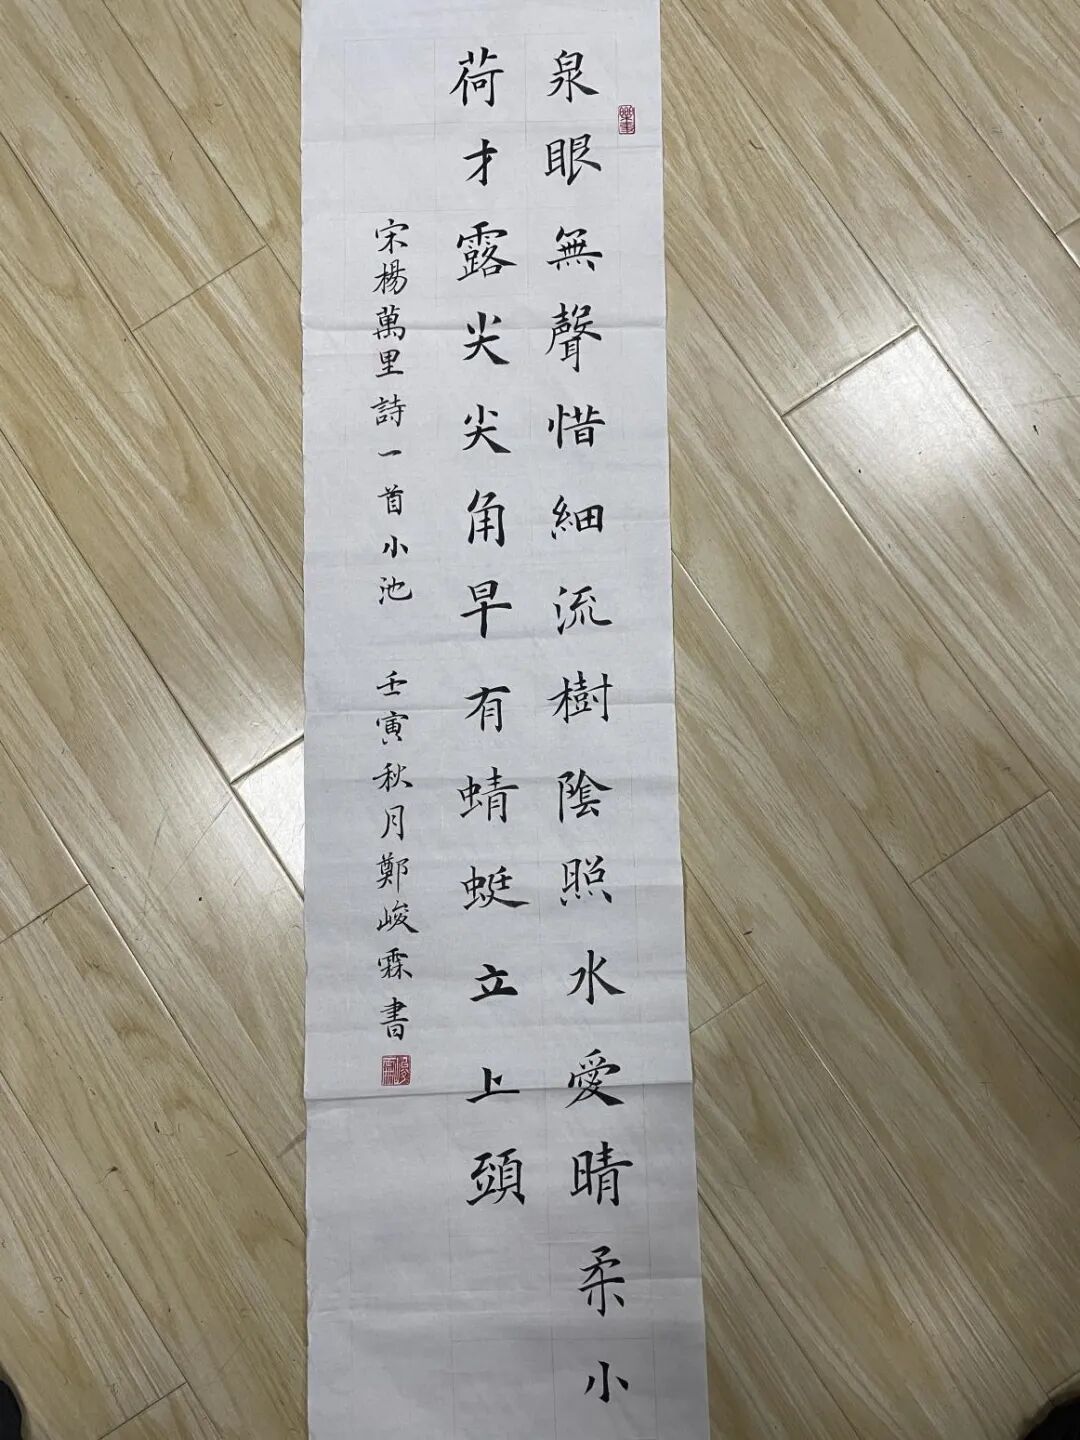 泉眼無聲惜細流樹陰照水愛晴柔小
荷才露尖尖角早有蜻蜓立上頭
宋楊萬里詩一首小池 壬寅秋月鄭峻霖書